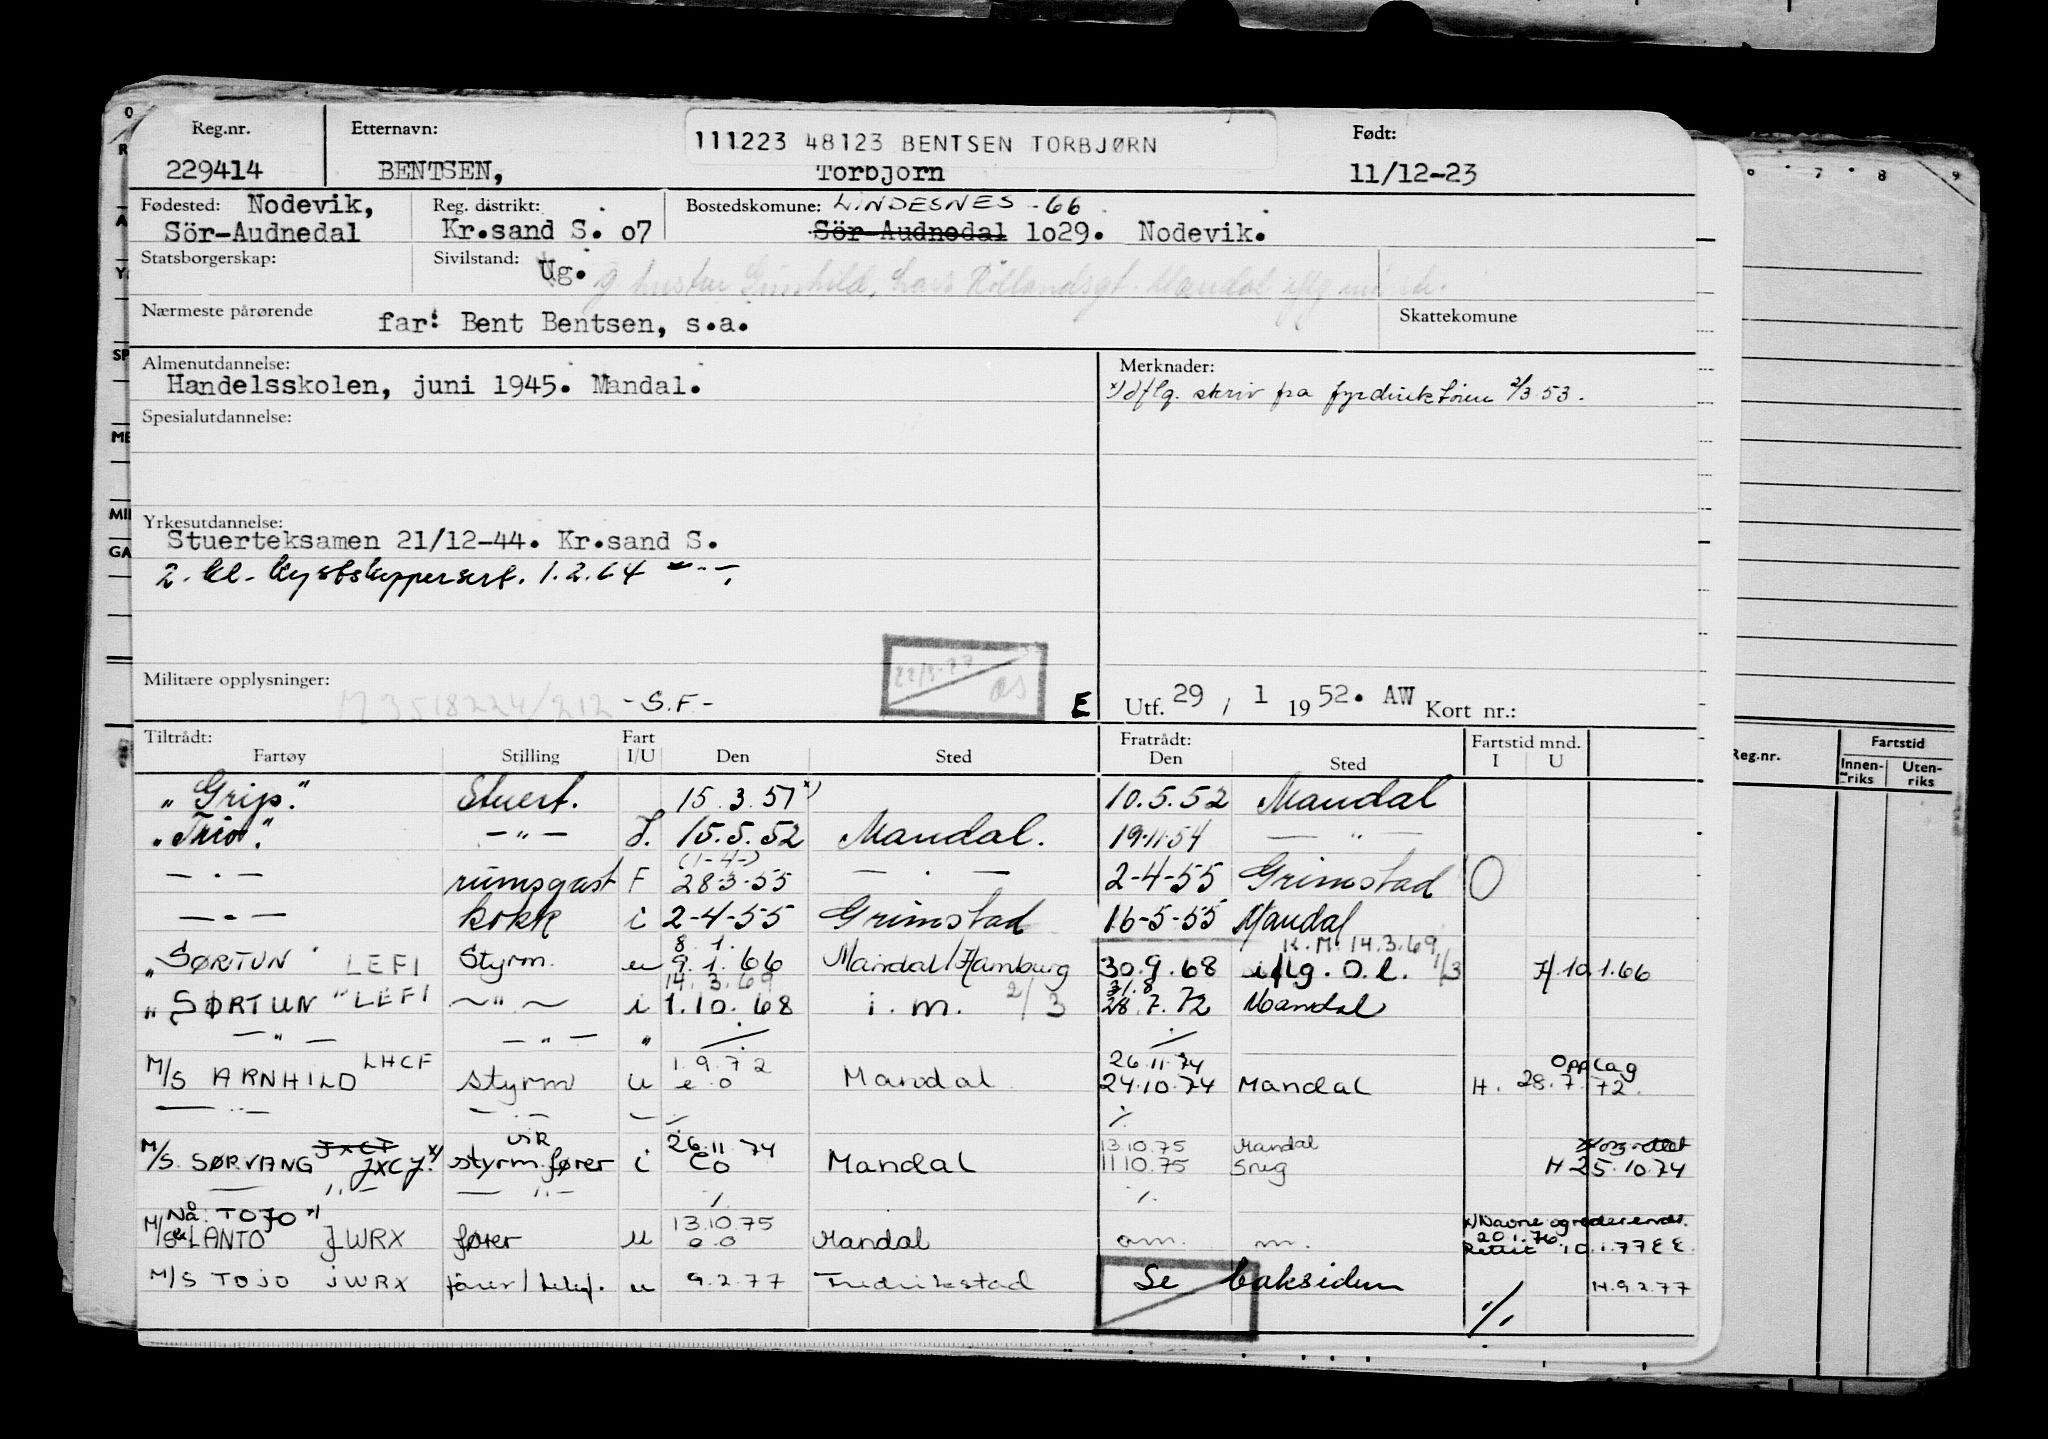 Reg.nr. Etternavn: 111223 48123 BENTSEN TORBJØRN Født:
229414 BENTSEN, Torbjörn 11/12-23
Fødested: Nodevik, Reg. distrikt: Bostedskomune: LINDESNES -66
Sör-Audnedal Kr.sand S. o7 Sör-Audnedal 1o29. Nodevik.
Statsborgerskap: Sivilstand: Ug. g. hustru Gunhild,
Nærmeste pårørende far: Bent Bentsen, s.a. Skattekomune
Almenutdannelse: Merknader:
Handelsskolen, juni 1945. Mandal. x) Iflg. skriv fra fyrdirektøren 2/3 53.
Spesialutdannelse:
Yrkesutdannelse:
Stuerteksamen 21/12-44. Kr.sand S.
2. kl. kystskippersert. 1.2.64 - " -
Militære opplysninger: M 3518224/212 - S.F - E Utf. 29 / 1 1952. AW Kort nr.:
Tiltrådt: Fart Fratrådt: Fartstid mnd.
Fartøy Stilling I/U Den Sted Den Sted I U
"Grip." Stuert. 15.3.51 x) 10.5.52 Mandal
"Trio". - " - I. 15.5.52 Mandal. 19.11.54 - " -
(1-4-)
- " - rumsgast F 28-3-55 - " - 2-4-55 Grimstad O
- " - kokk i 2-4-55 Grimstad 16-5-55 Mandal
8. 1. K.M. 14.3.69
"SØRTUN" LEFI Styrm. u 9.1.66 Mandal/Hamburg 30.9.68 iflg. O.l. 1/3 H 10.1.66
14.3.69 31.8
"SØRTUN" LEFI - " - i 1.10.68 i. m. 2/3 28.7.72 Mandal
- " - - " - " ./. ./.
LHCF 1.9.72 26.11.74 Opplag
M/S ARNHILD styrm u e.o Mandal 24.10.74 Mandal H. 28.7.72.
- " - - " - - ./. ./.
JXCI vik 26.11.74 13.10.75 Mandal
M/S. SØRVANG JXCJ. x) styrm. fører i eo Mandal 11.10.75 Snig H 25.10.74
- " - - " - ./. ./.
Nå: TOJO x) 13.10.75 x) Navne og rederiendr. 20.1.76.
M/S ex LANTO JWRX fører u e.o Mandal am. m. Rettet 10.1.77 EE.
M/S TOJO JWRX fører / u 9.2.77 Fredrikstad Se baksiden ./. H.9.2.77
Reg.nr. Fartstid
Innenriks Utenriks